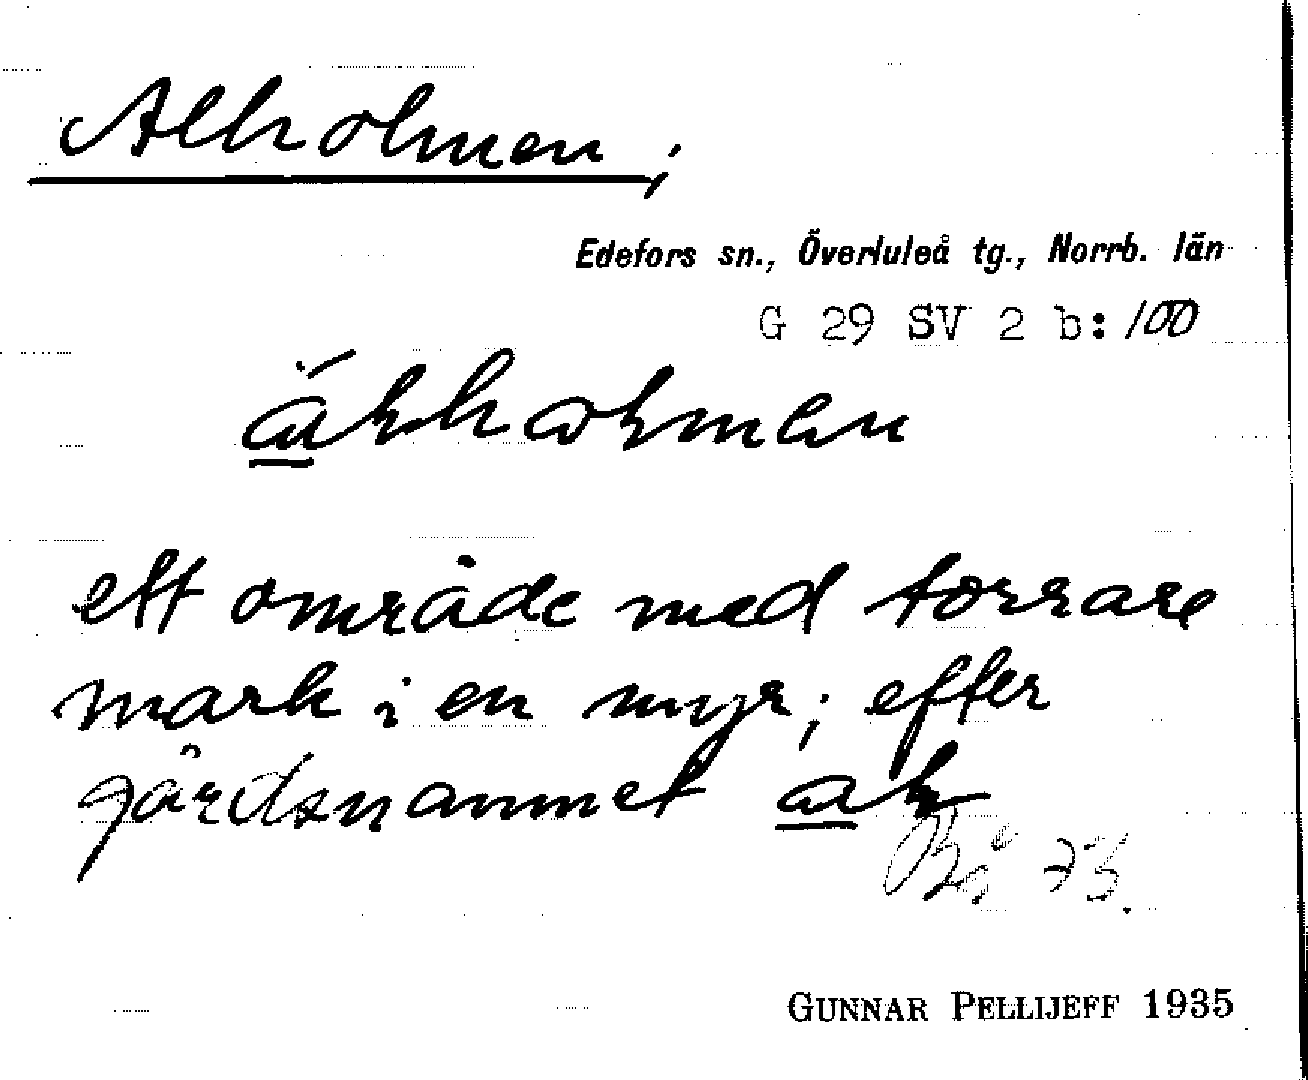 Alholmen;
Edefors sn., Överluleå tg., Norrb. län
G 29 SV 2 b: 100
ett område med torrare
mark i en myr; efter
gårdsnamnet
GUNNAR PELLIJEFF 1935